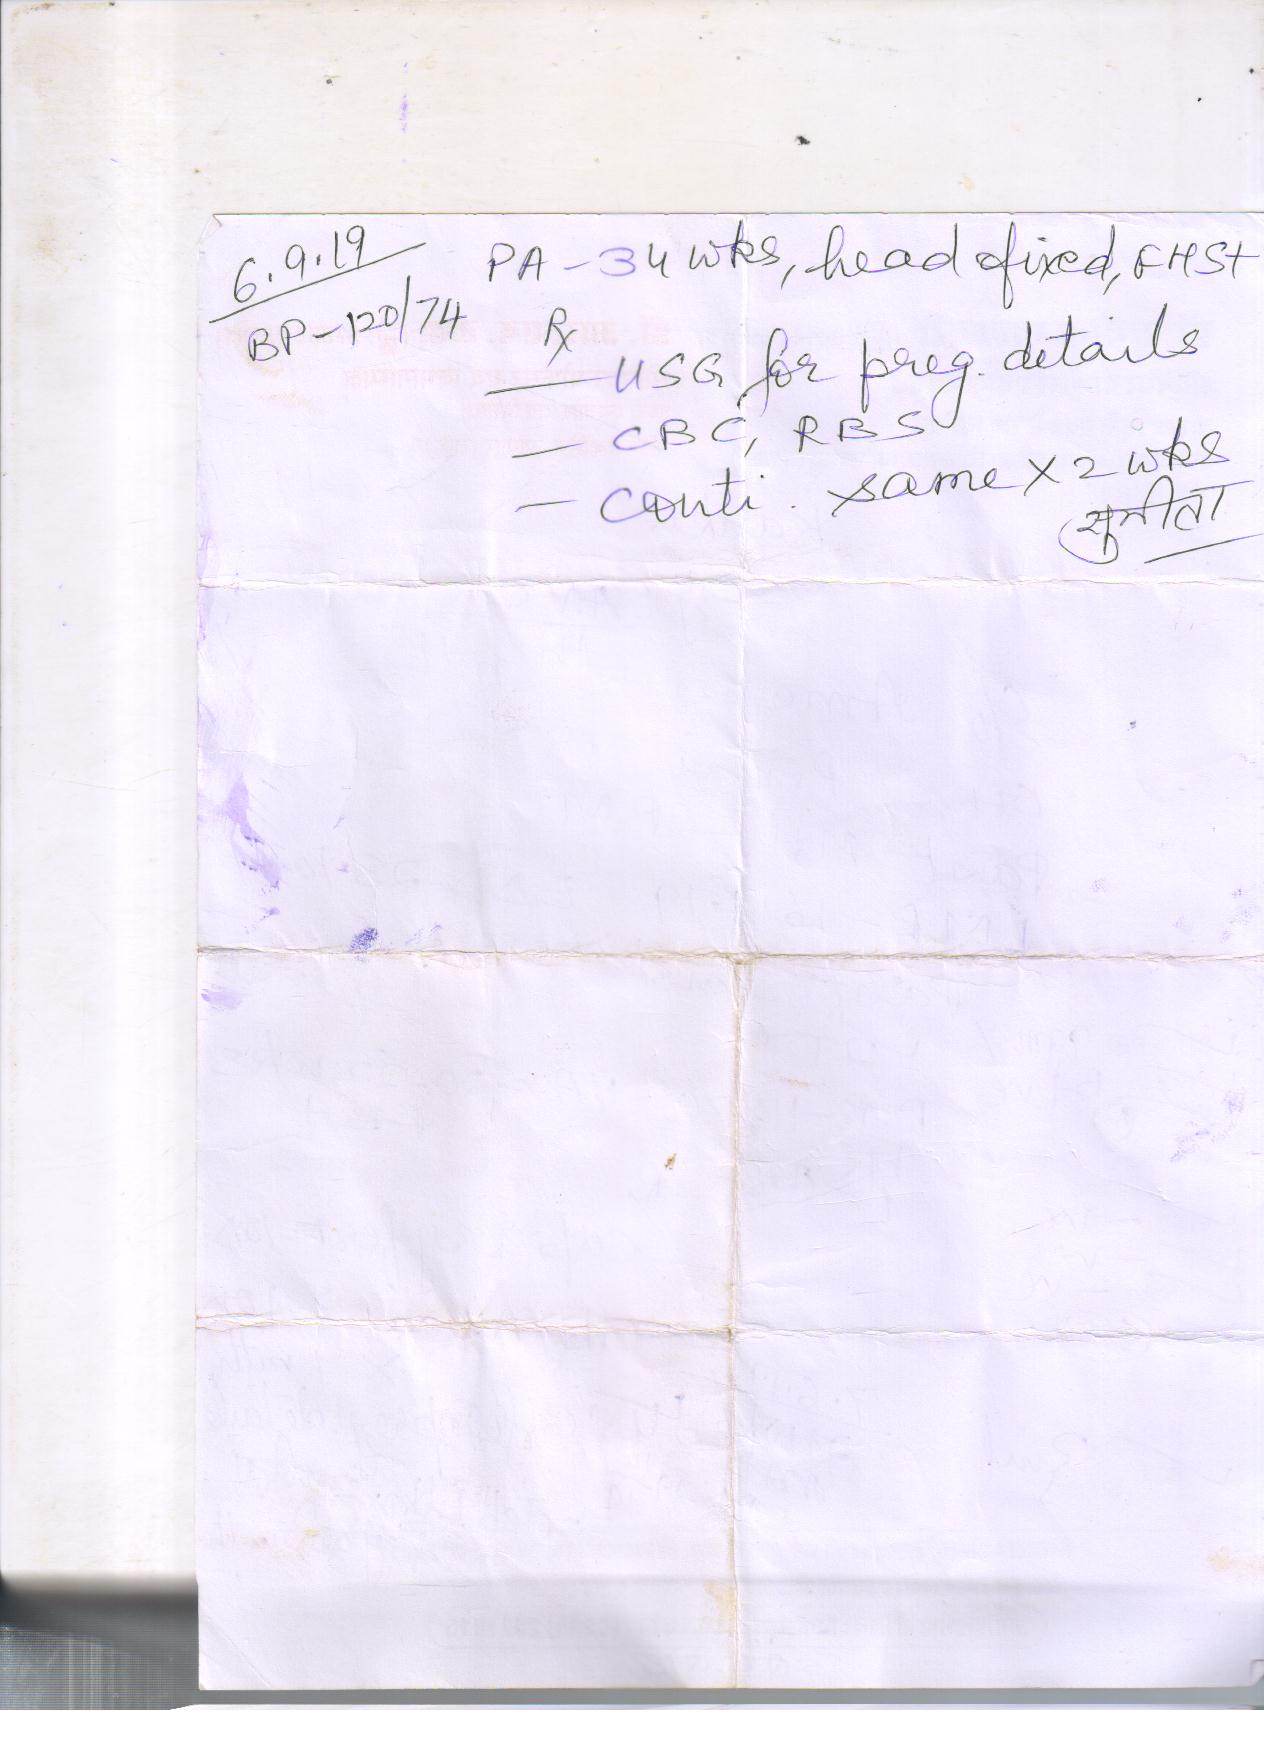 6.9.19 PA - 34 wks, head fixed, FHS+
BP - 120/74 Rx
— USG for preg. details
— CBC, RBS
— Conti. same x 2 wks
सुनीता